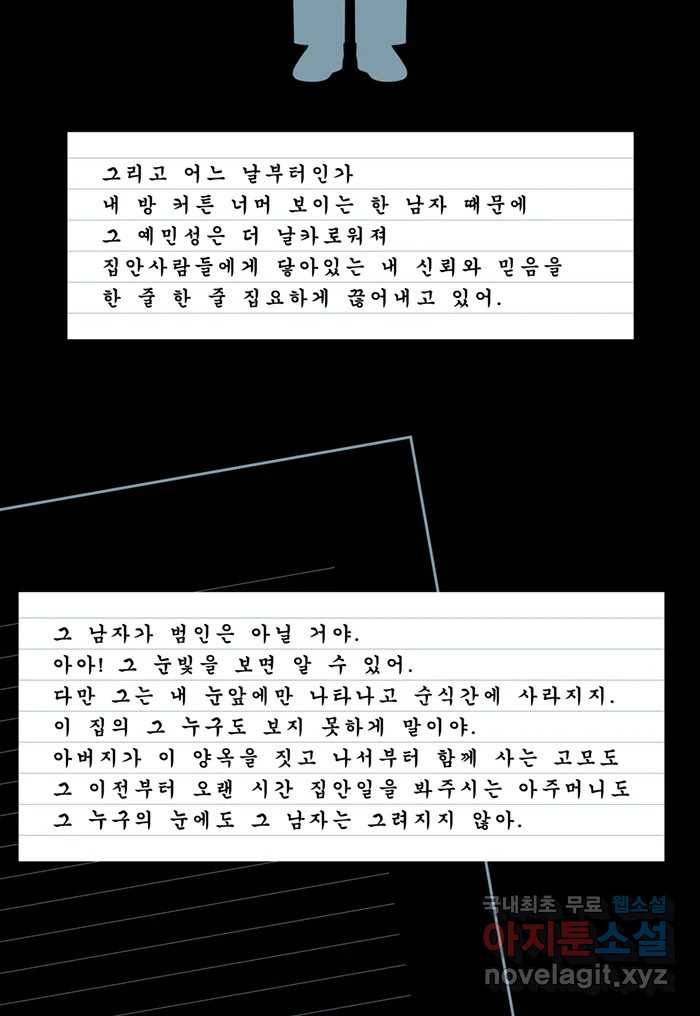 그리고 어느 날부터인가
내 방 커튼 너머 보이는 한 남자 때문에
그 예민성은 더 날카로워져
집안사람들에게 닿아있는 내 신뢰와 믿음을
한 줄 한 줄 집요하게 끊어내고 있어.
그 남자가 범인은 아닐 거야.
아아! 그 눈빛을 보면 알 수 있어.
다만 그는 내 눈앞에만 나타나고 순식간에 사라지지.
이 집의 그 누구도 보지 못하게 말이야.
아버지가 이 양옥을 짓고 나서부터 함께 사는 고모도
그 이전부터 오랜 시간 집안일을 봐주시는 아주머니도
그 누구의 눈에도 그 남자는 그려지지 않아.
국내최초 무료 웹소설
아지툰소설
novelagit.xyz